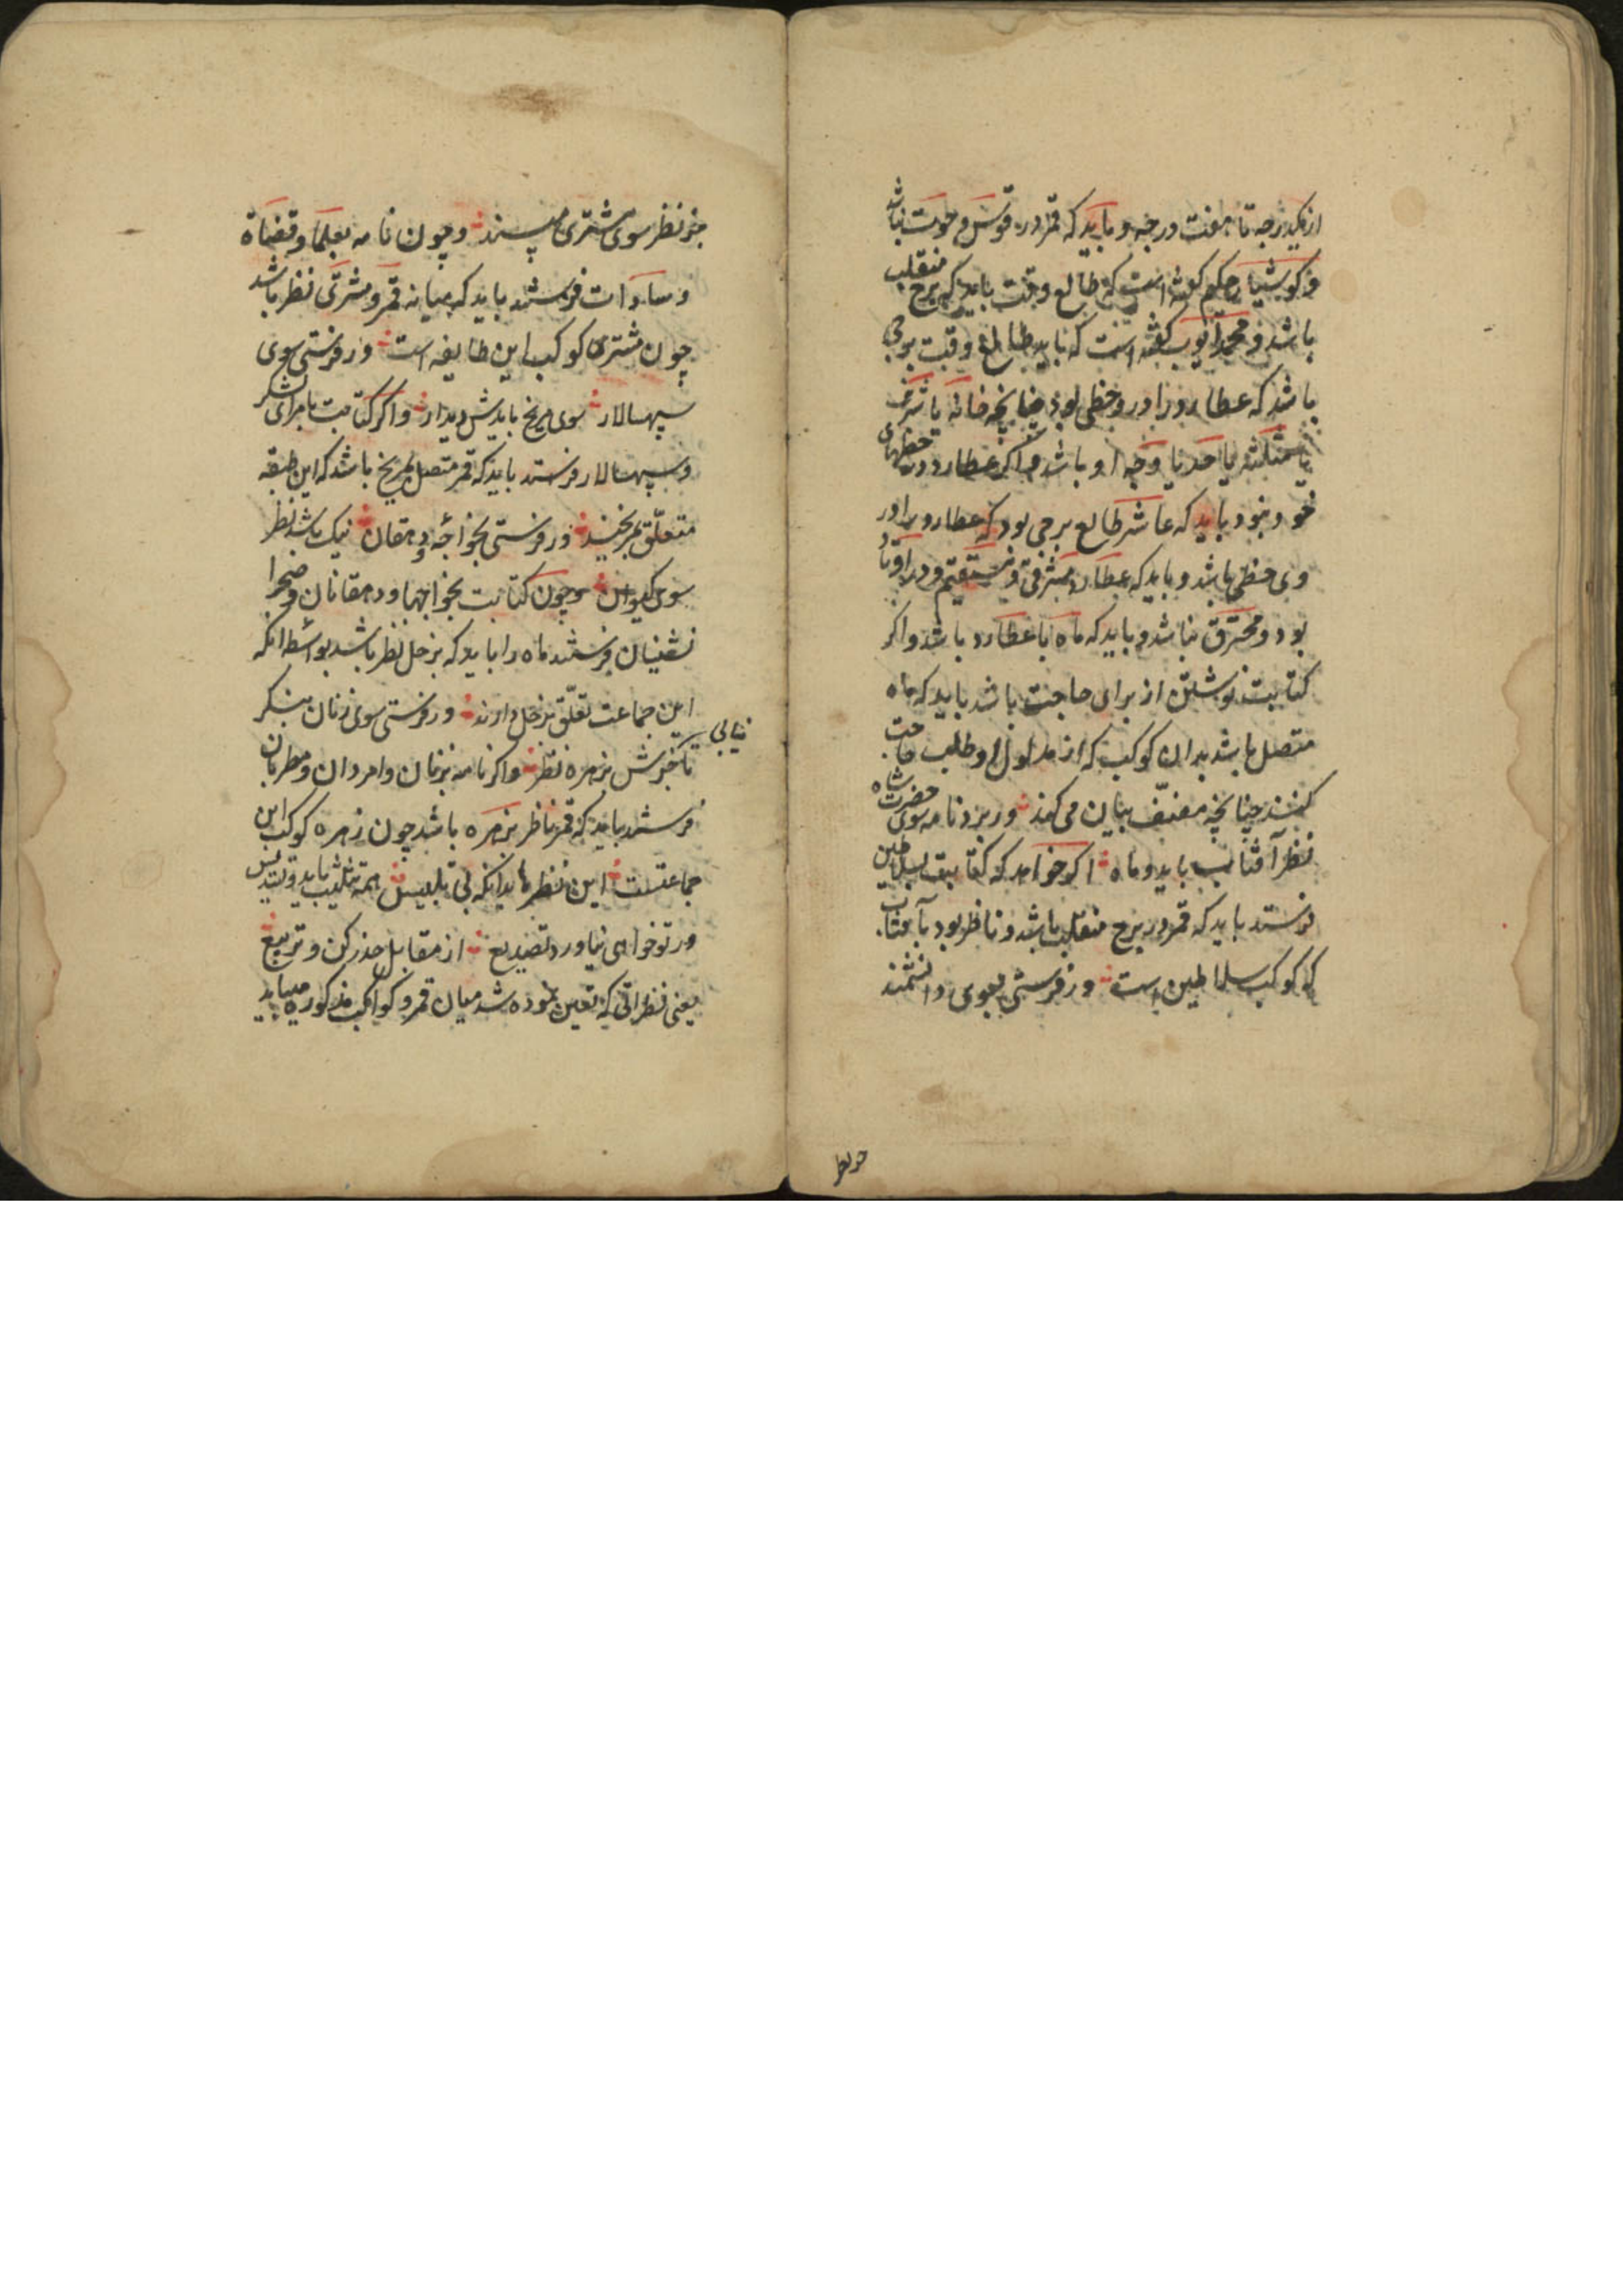 از یکدرجه تا هفت درجه و باید که قمر در قوس و حوت نباشد
و کوشیار حکیم گفته است که طالع وقت باید که برج منقلب
باشد و محمد ایوب گفته است که باید طالع وقت برجی
باشد که عطارد را درو حظی بود چنانچه خانه یا شرف
یا مثلثه یا حد یا وجه او باشد و اگر عطارد در حظهای
خود نبود باید که عاشر طالع برجی بود که عطارد را در
وی حظی باشد و باید که عطارد مشرقی و مستقیم و در اوتاد
بود و محترق نباشد و باید که ماه با عطارد باشد و اگر
کتابت نوشتن از برای حاجت باشد باید که ماه
متصل باشد بدان کوکب که از مدلول او طلب حاجت
کنند چنانچه مصنف بیان می کند ور برد نامه سوی حضرت شاه
نظر آفتاب باید و ماه اگر خواهد که کتابت بسلاطین
فرستد باید که قمر در برج منقلب باشد و ناظر بود بآفتاب
که کوکب سلاطین است ور فرستی بسوی دانشمند
جز نظر
جز نظر سوی مشتری مپسند و چون نامه بعلما و قضاة
و سادات فرستند باید که میانه قمر و مشتری نظر باشد
چون مشتری کوکب این طایفه است ور فرستی سوی
سپهسالار سوی مریخ بایدش دیدار و اگر کتابت بامرای لشکر
و سپهسالار فرستد باید که قمر متصل بمریخ باشد که این طبقه
متعلق بمریخند ور فرستی بخواجه و دهقان نیک باشد نظر
سوی کیوان و چون کتابت بخواجها و دهقانان و صحرا
نشینان فرستند ماه را باید که بزحل نظر باشد بواسطه انکه
این جماعت تعلق بزحل دارند ور فرستی سوی زنان بنگر
تا خوش بزهره نظر و اگر نامه بزنان و امردان و مطربان
نیابی
فرستد باید که قمر ناظر بزهره باشد چون زهره کوکب این
جماعتست این نظرها بدانکه بی تلبیس همه تثلیث باید و تسدیس
ور تو خواهی نیاورد تصدیع از مقابل حذر کن و تربیع
یعنی نظراتی که تعین نموده شد میان قمر و کواکب مذکوره میباید